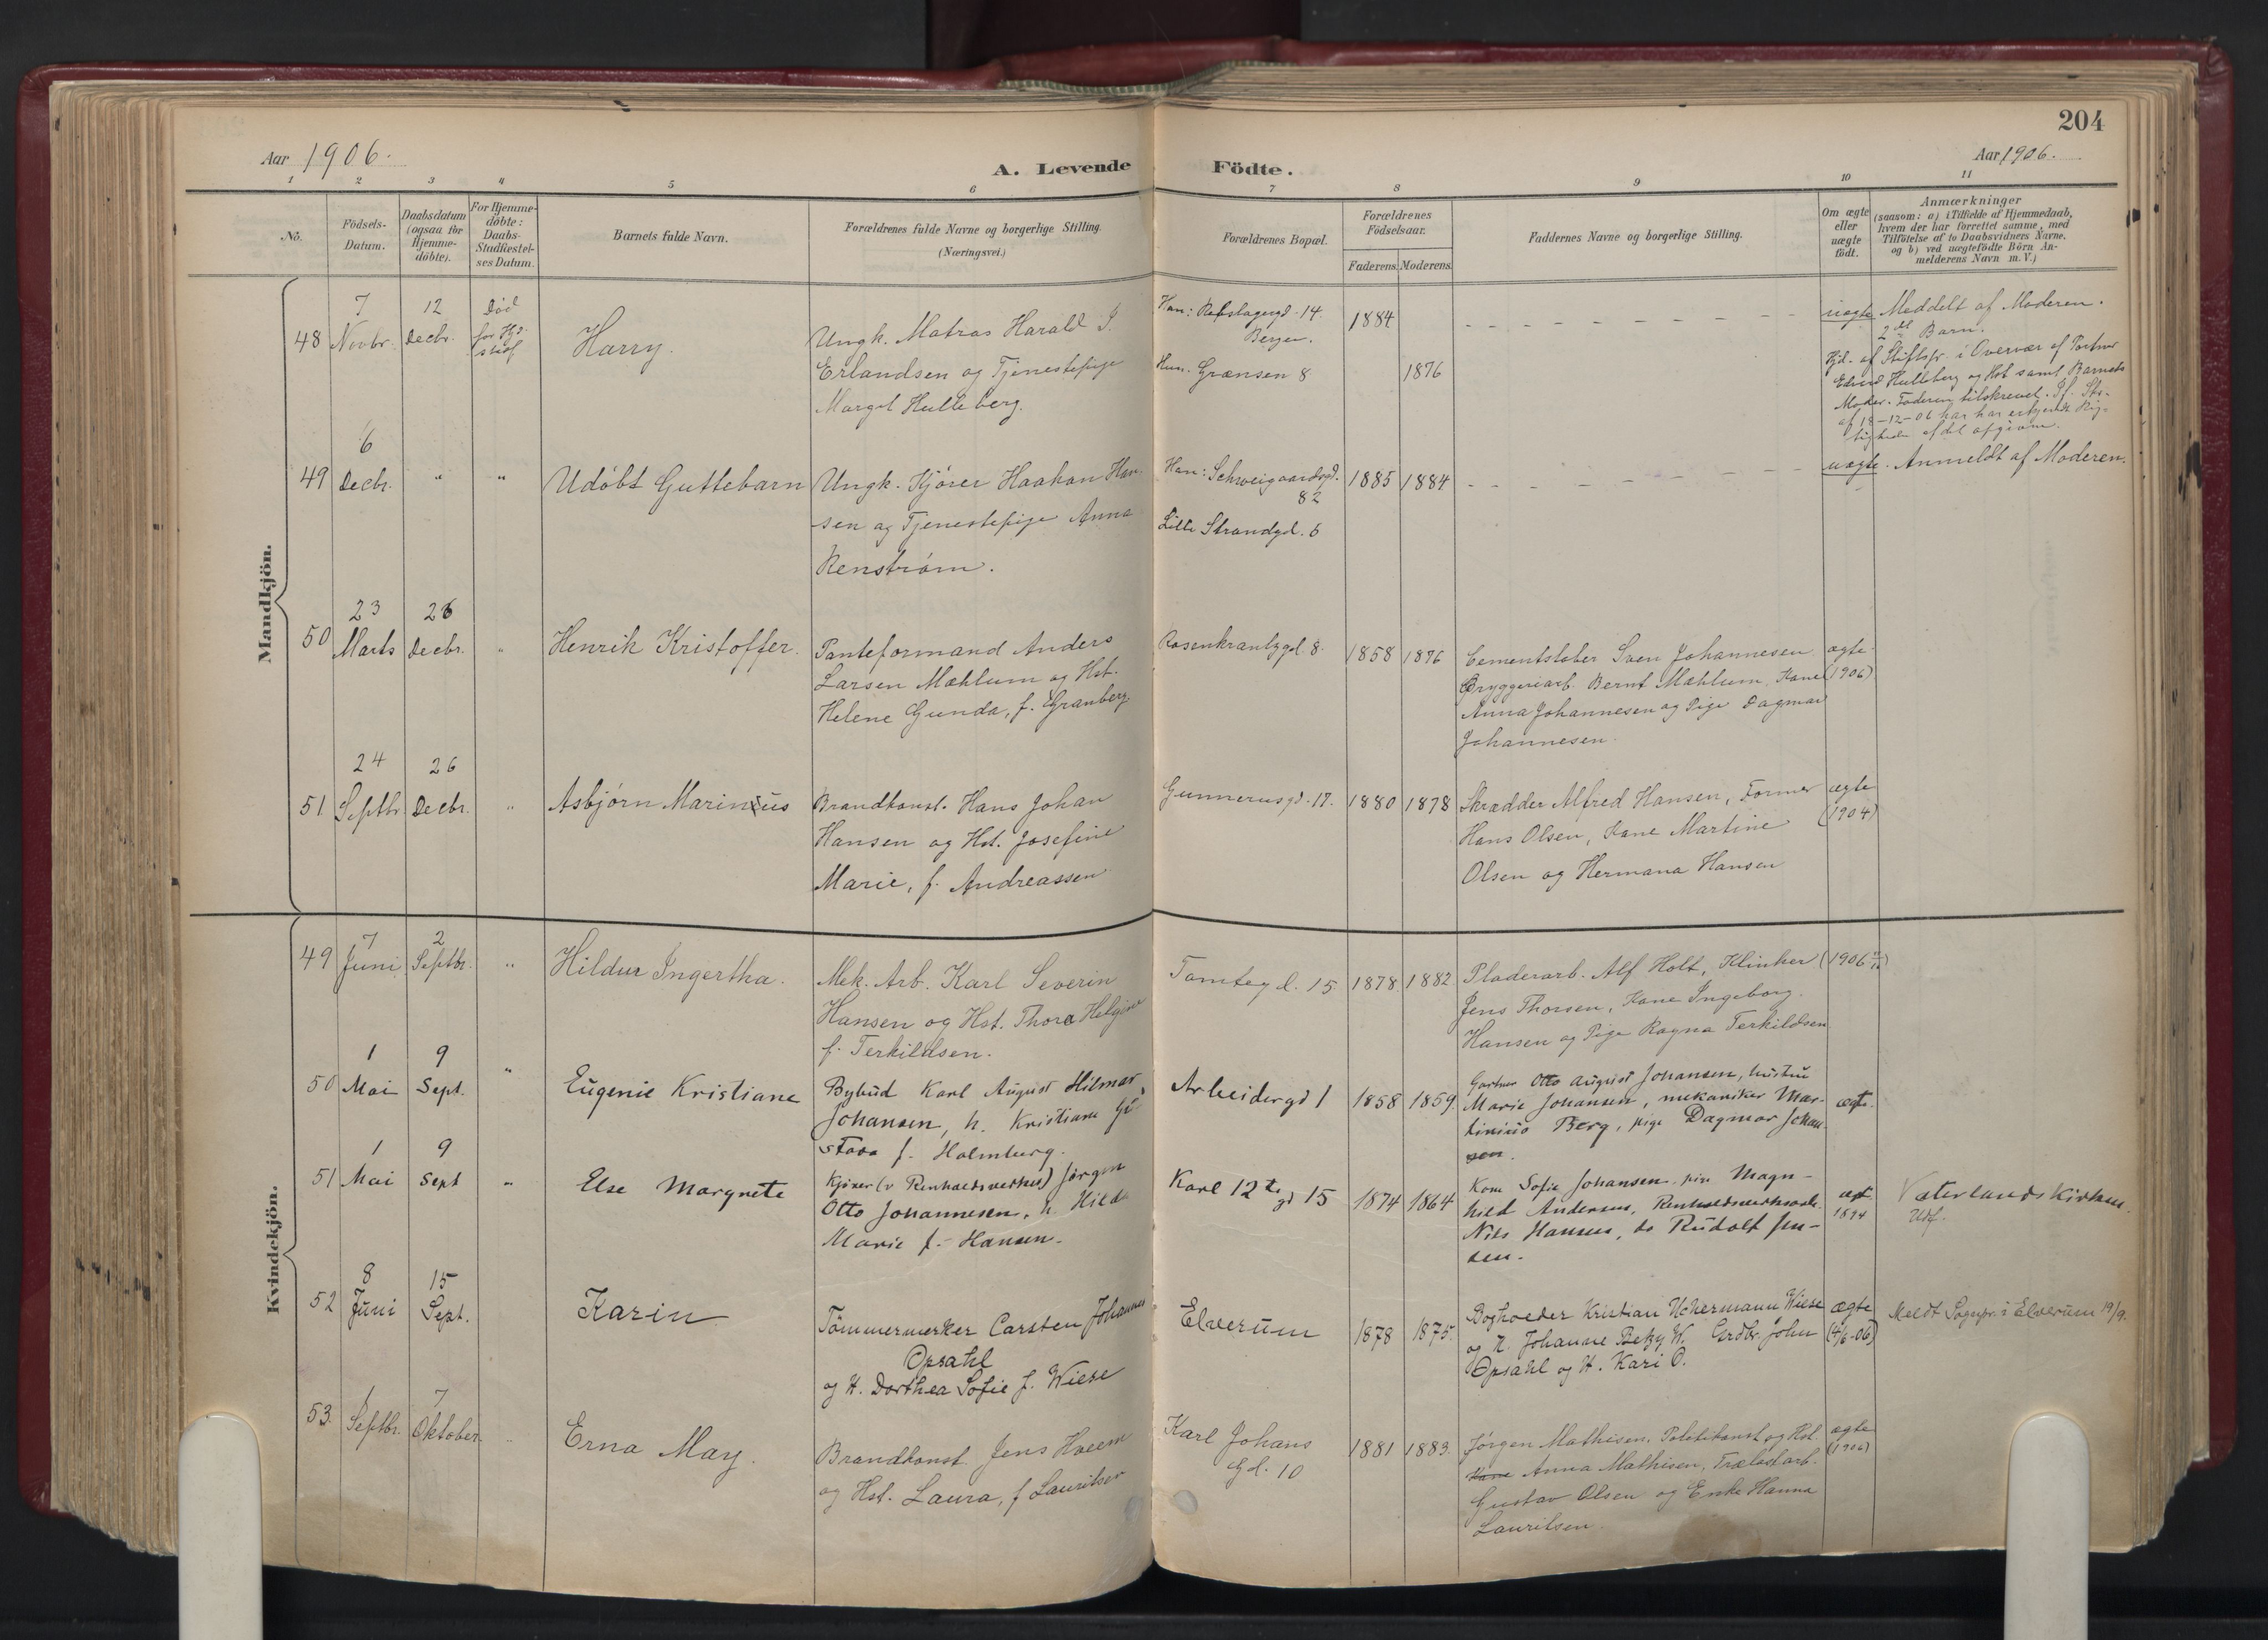 204
Aar 1906.
A. Levende Födte.
Aar 1906.
1 2 3 4 5 6 7 8 9 10 11
No.
Födsels-
Datum.
Daabsdatum
(ogsaa for
Hjemme-
döbte).
For Hjemme-
döbte:
Daabs-
Stadfæstel-
ses Datum.
Barnets fulde Navn.
Forældrenes fulde Navne og borgerlige Stilling.
(Næringsvei.)
Forældrenes Bopæl.
Forældrenes
Födselsaar.
Faderens. Moderens.
Faddernes Navne og borgerlige Stilling.
Om ægte
eller
uægte
födt.
Anmærkninger
(saasom: a) i Tilfælde af Hjemmedaab,
hvem der har forrettet samme, med
Tilföielse af to Daabsvidners Navne.
og b) ved uægtefödte Börn An-
melderens Navn m. V.)
Mandkjön.
48
7
Novbr.
12
Decbr.
Död
før Hjd.
stadf
Harry.
Ungk. Matros Harald J.
Erlandsen og Tjenestepige
Margit Hulleberg.
Han: Rebslagergd. 14.
Bergen.
Hun. Grænsen 8
1884
1876
uægte
Meddelt af Moderen.
2det Barn.
Hjd. af Stiftsfr. i Overvær af Portner
Edvard Hulleberg og Hst samt Barnets
Moder. Faderen tilskrevet. If. Skr.
af 18-12-06 har han erkjendt Rig-
tigheden af det opgivne.
49
6
Decbr.
" "
Udöbt Guttebarn
Ungk. Kjörer Haakon Han-
sen og Tjenestepige Anna
Renström.
Han: Schweigaardsgd.
82
Lille Strandgd. 6
1885 1884
uægte.
Anmeldt af Moderen.
50
23
Marts
26
Decbr.
"
Henrik Kristoffer.
Panteformand Anders
Larsen Mæhlum og Hst.
Helene Gunda, f. Granberg.
Rosenkrantzgd. 8.
1858 1876
Cementstøber Sven Johannesen
Bryggeriarb. Bernt Mæhlum, Kone
Anna Johannesen og Pige Dagmar
Johannesen.
ægte.
(1906)
51
24
Septbr
26
Decbr.
"
Asbjörn Marinius
Brandkonst. Hans Johan
Hansen og Hst. Josefine
Marie, f. Andreassen
Gunnerusgd. 17.
1880 1878
Skrædder Alfred Hansen, Former
Hans Olsen, Kone Martine
Olsen og Hermana Hansen
ægte
(1904)
Kvindekjön.
49
7
Juni
2
Septbr.
"
Hildur Ingertha.
Mek. Arb. Karl Severin
Hansen og Hst. Thora Helgine
f. Terkildsen.
Tomtegd. 15
1878. 1882.
Pladerarb. Alf Holt, Klinker
Jens Thorsen, Kone Ingeborg
Hansen og Pige Ragna Terkildsen
(1906
50
1
Mai
9
Sept.
"
Eugenie Kristiane
Bybud Karl August Hilmar
Johansen, h. Kristiane Gu-
stava f. Holmberg.
Arbeidergd 1
1858 1859.
Gartner Otto August Johansen, hustru
Marie Johansen, mekaniker Mar-
tinius Berg, pige Dagmar Johan-
sen.
ægte.
51
1
Mai
9
Sept
"
Else Margrete
Kjører (v Renholdsverket) Jørgen
Otto Johannesen, h. Hilda
Marie f. Hansen.
Karl 12te gd 15
1874 1864
Kone Sofie Johansen, pige Magn-
hild Andersen, Renholdsverksarb.
Nils Hansen, do Rudolf Jen-
sen.
ægt.
1894
Vaterlands Kirkens
Utf.
52
8
Juni
15
Sept.
Karin
Tömmermerker Carsten Johannes
Opsahl
og H. Dorthea Sofie f. Wiese
Elverum
1878 1875
Bogholder Kristian Uchermann Wiese
og H. Johanne Betzy W. Grdbr. John
Opsahl og H. Kari O.
ægte
(4/6-06)
Meldt Sognepr. i Elverum 19/9.
53.
1
Septbr.
7
Oktober.
"
Erna May.
Brandkonst. Jens Hveem
og Hst. Laura, f Lauritsen
Karl Johans
Gd. 10
1881 1883.
Jörgen Mathisen, Politikonst og Hst.
Kone Anna Mathisen, Trælastarb.
Gustav Olsen og Enke Hanna
Lauritsen.
ægte
(1906)